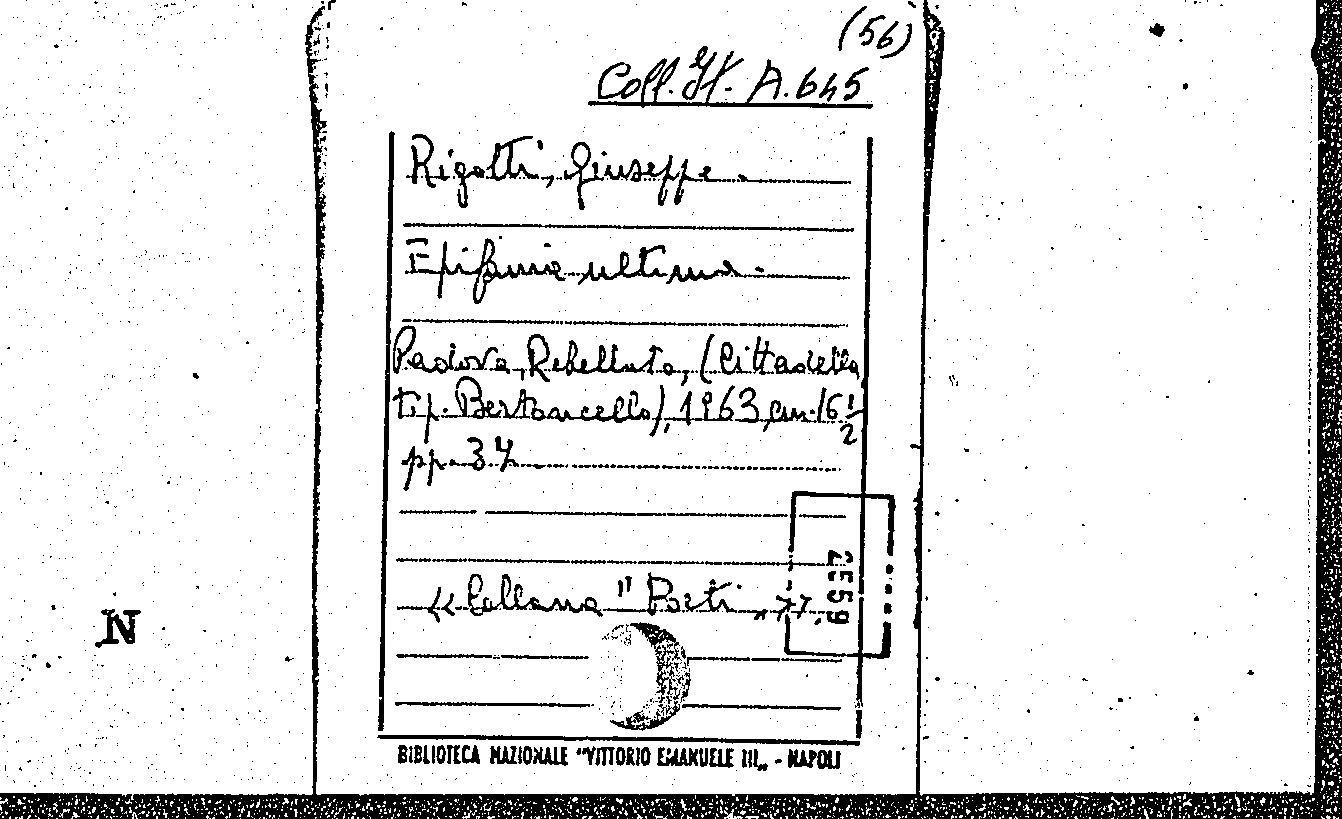 (56)
Coll. It. A. 645
Rigotti, Giuseppe.
Epifania ultima.
Padova, Rebellato, (Cittadella
tip. Bertoncello), 1963, cm. 16 1/2
pp. 34.
« Collana " Poeti, »,
2559
BIBLIOTECA NAZIONALE "VITTORIO EMANUELE III„ - NAPOLI
N